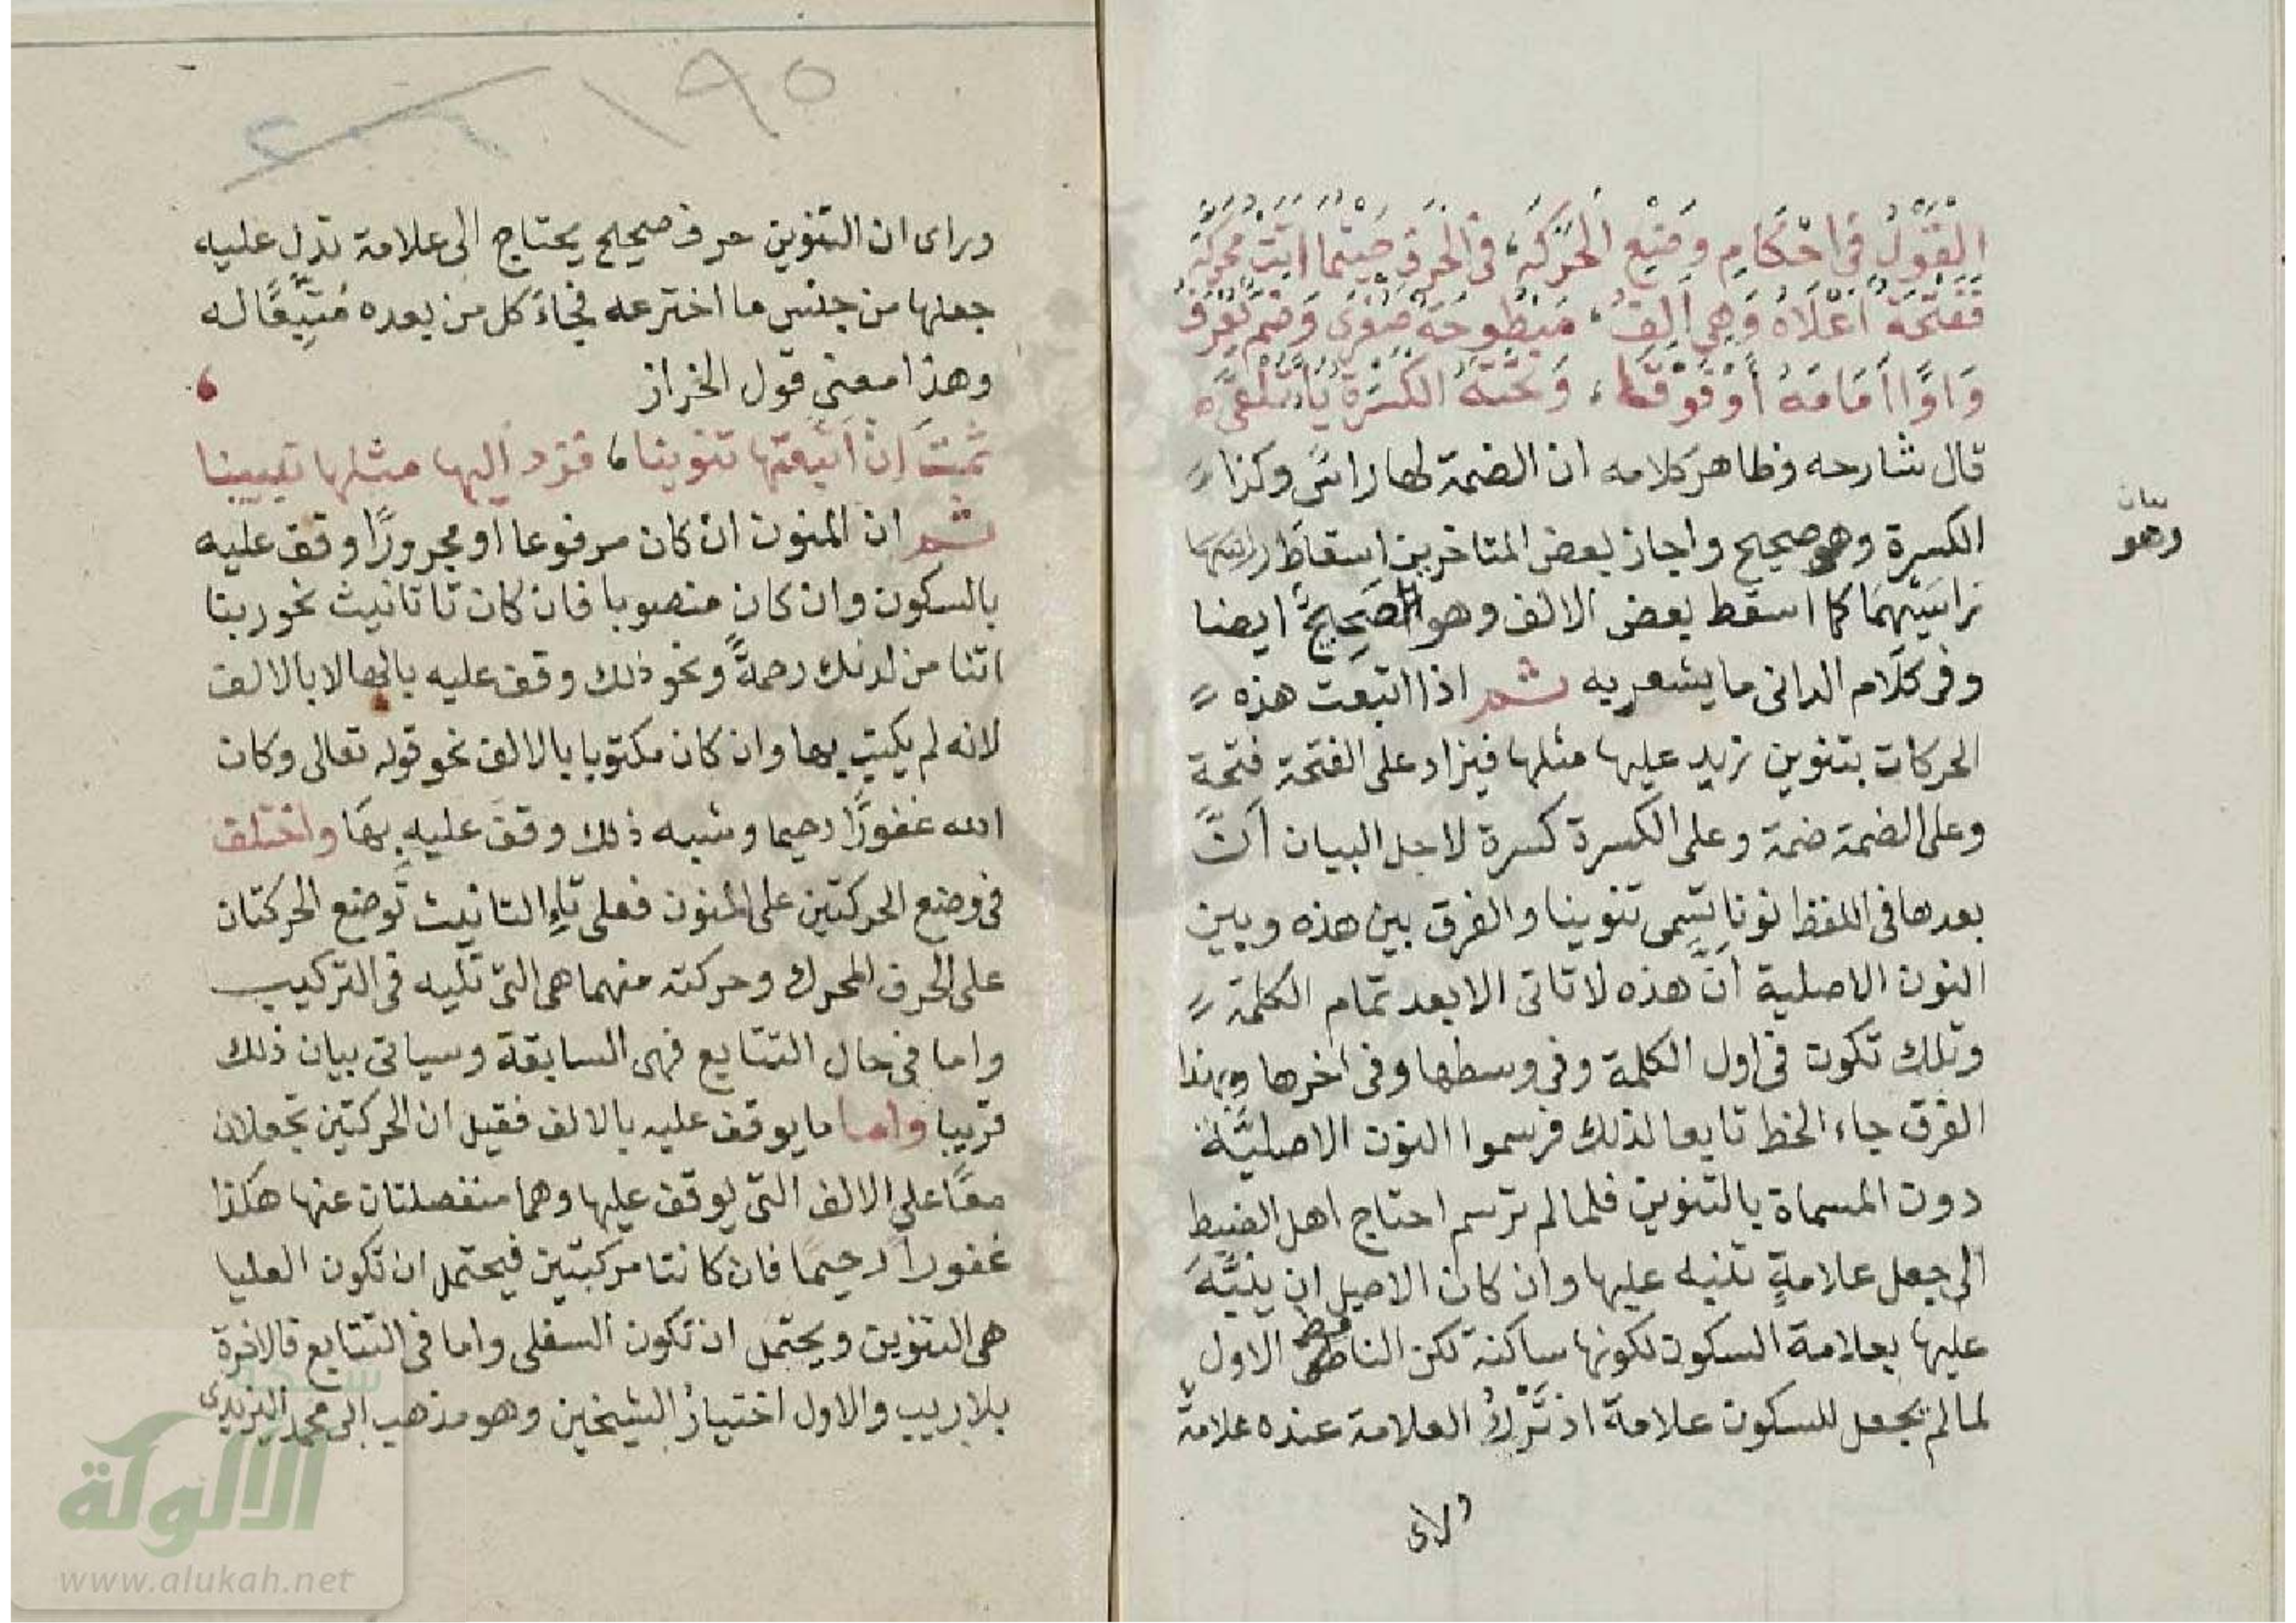 القَوْلُ فِي احْكَامِ وَضْعِ الْحَرَكَةِ، فِي الْحَرْفِ حَيْثُمَا اتَتْ مُحَرَّكَهْ
فَفَتْحَةٌ اَعْلَاهُ وَهِيَ اَلِفُ، مَبْطُوحَةٌ صُغْرَى وَضَمٌّ يُعْرَفُ
وَاوًا أَمَامَهُ أَوْ فَوْقَا، وَتَحْتَهُ الكَسْرَةُ يَاءً تُلْقَى
قال شارحه وظاهر كلامه ان الضمة لها راسٌ وكذا
الكسرة وهو صحيح واجاز بعض المتاخرين اسقاط
راسَيْهِمَا كما اسقط بعض الالف وهو الصَحِيحُ ايضا
وفي كلام الداني ما يشعر به ثم اذا اتبعت هذه
الحركات بتنوين نزيد عليها مثلها فيزاد على الفتحة فتحة
وعلى الضمة ضمة وعلى الكسرة كسرة لاجل البيان أنَّ
بعدها في اللفظ نونا تسمى تنوينا والفرق بين هذه وبين
النون الاصلية أنّ هذه لا تاتى الا بعد تمام الكلمة
وتلك تكون في اول الكلمة وفي وسطها وفي اخرها وبهذا
الفرق جاء الخط تابعا لذلك فرسموا النون الاصليَّة
دون المسماة بالتنوين فلما لم ترسم احتاج اهل الضبط
الى جعل علامةٍ تنبه عليها وان كان الاصل ان ينبَّهَ
عليها بعلامة السكون لكونها ساكنة لكن الناقط الاول
لما لم يجعل للسكون علامة اذ تَرْكُ العلامة عنده علامة
بيان
وهو
ورأى ان التنوين حرف صحيح يحتاج الى علامة تدل عليه
جعلها من جنس ما اخترعه فجاءَ كل من بعده مُتَّبِعًا له
وهذا معنى قول الخراز
ثُمَّتَ إن أتبعتها تنوينا، فزد إليها مثلها تبيينا
ثم ان المنون ان كان مرفوعا او مجرورًا وقف عليه
بالسكون وان كان منصوبا فان كان تا تانيث نحو ربنا
اتنا من لدنك رحمةً ونحو ذلك وقف عليه بالها لا بالالف
لانه لم يكتب بها وان كان مكتوبا بالالف نحو قوله تعالى وكان
الله غفورًا رحيما وشبه ذلك وقف عليه بها واختلف
في وضع الحركتين على المنون فعلى تاءِ التانيث توضع الحركتان
على الحرف المحرك وحركته منهما هي التي تليه في التركيب
واما في حال التتابع فهى السابقة وسياتى بيان ذلك
قريبا واما ما يوقف عليه بالالف فقيل ان الحركتين تجعلان
معًا على الالف التي يوقف عليها وهما منفصلتان عنها هكذا
غفوراً رحيمًا فان كانتا مركبتين فيحتمل ان تكون العليا
هي التنوين ويحتمل ان تكون السفلى واما في التتابع فالاخرة
بلا ريب والاول اختيارُ الشيخين وهو مذهب ابى محمد اليزيدى
١٩٥
الألوكة
www.alukah.net